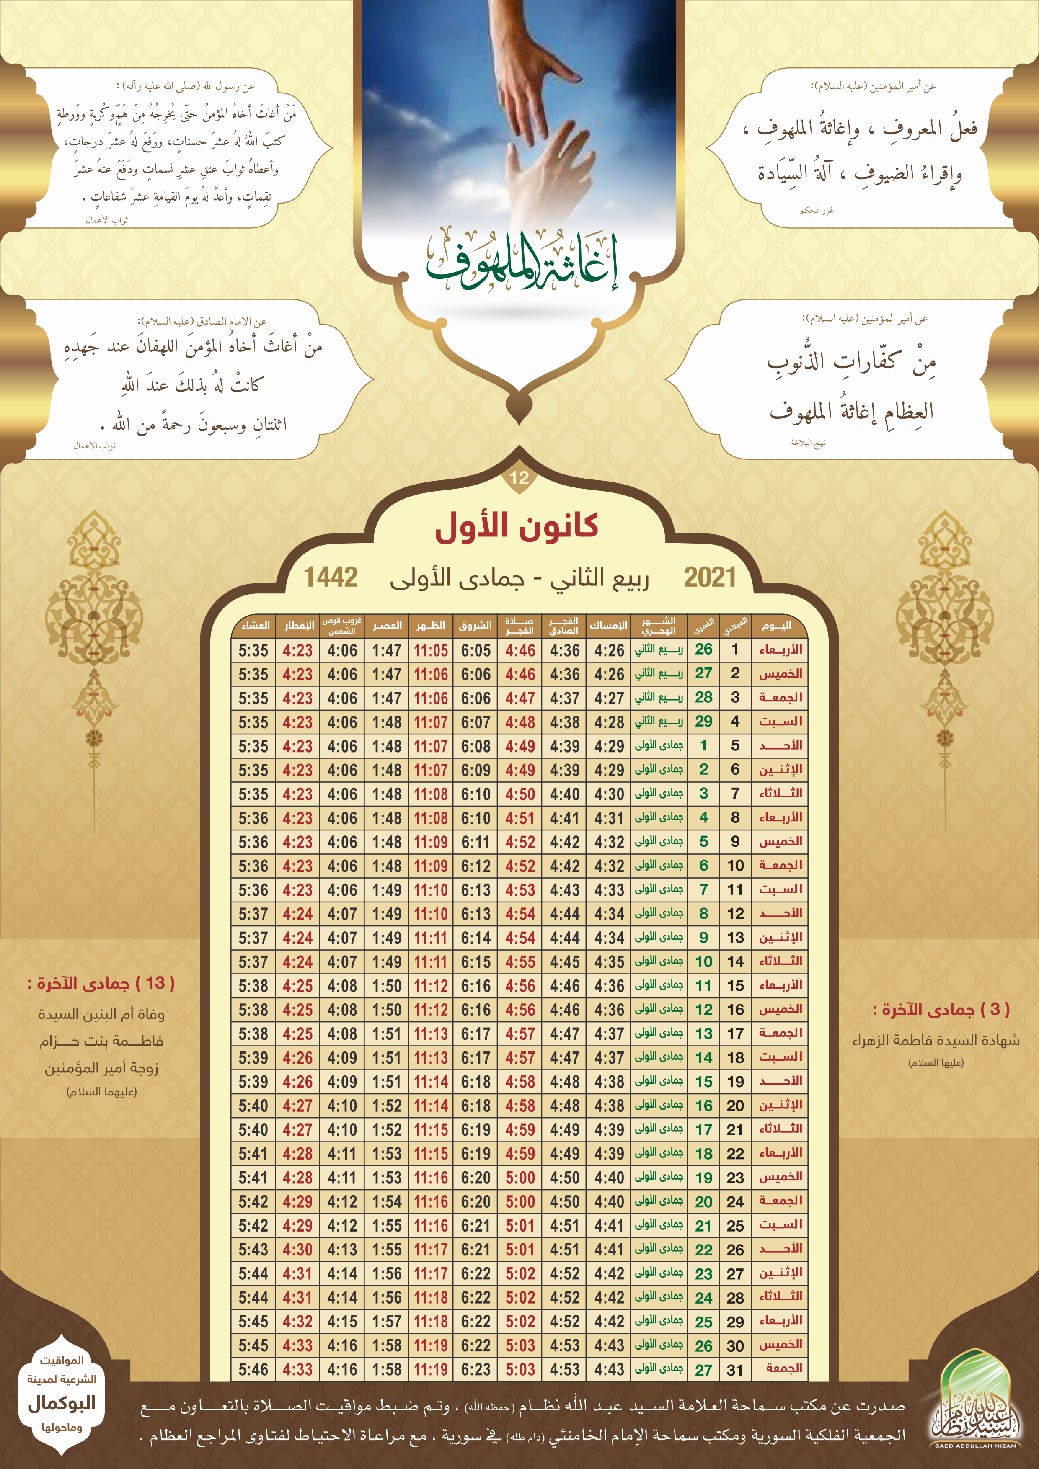 عن أمير المؤمنين (عليه السلام):
فعلُ المعروفِ ، وإغاثةُ الملهوفِ ،
وإقراءُ الضيوفِ ، آلةُ السِّيَادة
غرر الحكم
عن رسول الله (صلى الله عليه وآله) :
مَنْ أغاثَ أخاهُ المؤمنُ حتّى يُخرِجُهُ مِنْ هَمٍّ وكُربةٍ وورطةٍ
كتبَ اللهُ لهُ عشرَ حسناتٍ، ورفَعَ لهُ عشرَ درجاتٍ،
وأعطاهُ ثوابَ عتقِ عشرِ نسماتٍ ودَفَعَ عنهُ عشرَ
نقِماتٍ، وأعدَّ لهُ يومَ القيامةِ عشرَ شفاعاتٍ .
ثواب الأعمال
إغاثة الملهوف
عن أمير المؤمنين (عليه السلام):
مِنْ كفّاراتِ الذُّنوبِ
العِظامِ إغاثةُ الملهوف
نهج البلاغة
عن الإمام الصادق (عليه السلام):
منْ أغاثَ أخاهُ المؤمنَ اللهفانَ عند جَهدِهِ
كانتْ لهُ بذلكَ عندَ اللهِ
اثنتانِ وسبعونَ رحمةً من الله .
ثواب الأعمال
12
كانون الأول
2021 ربيع الثاني - جمادى الأولى 1442
اليـوم الميلادي القمري الشـهر الهجري الإمساك الفجـر الصادق صـلاة الفجر الشروق الظـهر العصر غروب قرص الشمس الإفطار العشاء
الأربعاء 1 26 ربيع الثاني 4:26 4:36 4:46 6:05 11:05 1:47 4:06 4:23 5:35
الخميس 2 27 ربيع الثاني 4:26 4:36 4:46 6:06 11:06 1:47 4:06 4:23 5:35
الجمعـة 3 28 ربيع الثاني 4:27 4:37 4:47 6:06 11:06 1:47 4:06 4:23 5:35
السـبت 4 29 ربيع الثاني 4:28 4:38 4:48 6:07 11:07 1:48 4:06 4:23 5:35
الأحـــد 5 1 جمادى الأولى 4:29 4:39 4:49 6:08 11:07 1:48 4:06 4:23 5:35
الإثنـين 6 2 جمادى الأولى 4:29 4:39 4:49 6:09 11:07 1:48 4:06 4:23 5:35
الثـلاثاء 7 3 جمادى الأولى 4:30 4:40 4:50 6:10 11:08 1:48 4:06 4:23 5:35
الأربـعاء 8 4 جمادى الأولى 4:31 4:41 4:51 6:10 11:08 1:48 4:06 4:23 5:36
الخميس 9 5 جمادى الأولى 4:32 4:42 4:52 6:11 11:09 1:48 4:06 4:23 5:36
الجمعـة 10 6 جمادى الأولى 4:32 4:42 4:52 6:12 11:09 1:48 4:06 4:23 5:36
السـبت 11 7 جمادى الأولى 4:33 4:43 4:53 6:13 11:10 1:49 4:06 4:23 5:36
الأحـــد 12 8 جمادى الأولى 4:34 4:44 4:54 6:13 11:10 1:49 4:07 4:24 5:37
الإثنـين 13 9 جمادى الأولى 4:34 4:44 4:54 6:14 11:11 1:49 4:07 4:24 5:37
الثـلاثاء 14 10 جمادى الأولى 4:35 4:45 4:55 6:15 11:11 1:49 4:07 4:24 5:37
الأربـعاء 15 11 جمادى الأولى 4:36 4:46 4:56 6:16 11:12 1:50 4:08 4:25 5:38
الخميس 16 12 جمادى الأولى 4:36 4:46 4:56 6:16 11:12 1:50 4:08 4:25 5:38
الجمعـة 17 13 جمادى الأولى 4:37 4:47 4:57 6:17 11:13 1:51 4:08 4:25 5:38
السـبت 18 14 جمادى الأولى 4:37 4:47 4:57 6:17 11:13 1:51 4:09 4:26 5:39
الأحـــد 19 15 جمادى الأولى 4:38 4:48 4:58 6:18 11:14 1:51 4:09 4:26 5:39
الإثنـين 20 16 جمادى الأولى 4:38 4:48 4:58 6:18 11:14 1:52 4:10 4:27 5:40
الثـلاثاء 21 17 جمادى الأولى 4:39 4:49 4:59 6:19 11:15 1:52 4:10 4:27 5:40
الأربـعاء 22 18 جمادى الأولى 4:40 4:49 4:59 6:19 11:15 1:53 4:11 4:28 5:41
الخميس 23 19 جمادى الأولى 4:40 4:50 5:00 6:20 11:16 1:53 4:11 4:28 5:41
الجمعـة 24 20 جمادى الأولى 4:40 4:50 5:00 6:20 11:16 1:54 4:12 4:29 5:42
السـبت 25 21 جمادى الأولى 4:41 4:51 5:01 6:21 11:16 1:55 4:12 4:29 5:42
الأحـــد 26 22 جمادى الأولى 4:41 4:51 5:01 6:21 11:17 1:55 4:13 4:30 5:43
الإثنـين 27 23 جمادى الأولى 4:42 4:52 5:02 6:22 11:17 1:56 4:14 4:31 5:44
الثـلاثاء 28 24 جمادى الأولى 4:42 4:52 5:02 6:22 11:18 1:56 4:14 4:31 5:44
الأربـعاء 29 25 جمادى الأولى 4:42 4:52 5:02 6:22 11:18 1:57 4:15 4:32 5:45
الخميس 30 26 جمادى الأولى 4:43 4:53 5:03 6:22 11:19 1:58 4:16 4:33 5:45
الجمعة 31 27 جمادى الأولى 4:43 4:53 5:03 6:23 11:19 1:58 4:16 4:33 5:46
( 3 ) جمادى الآخرة :
شهادة السيدة فاطمة الزهراء
(عليها السلام)
( 13 ) جمادى الآخرة :
وفاة أم البنين السيدة
فاطـــمة بنت حـــزام
زوجة أمير المؤمنين
(عليهما السلام)
صدرت عن مكتب سماحة العلامة السيد عبد الله نظـام (حفظه الله) ، وتم ضبط مواقيت الصـلاة بالتعـاون مـع
الجمعية الفلكية السورية ومكتب سماحة الإمام الخامنئي (دام ظله) في سورية ، مع مراعاة الاحتياط لفتاوى المراجع العظام .
المواقيت
الشرعية لمدينة
البوكمال
وماحولها
السيد عبد الله نظام
SAED ABDULLAH NIZAM